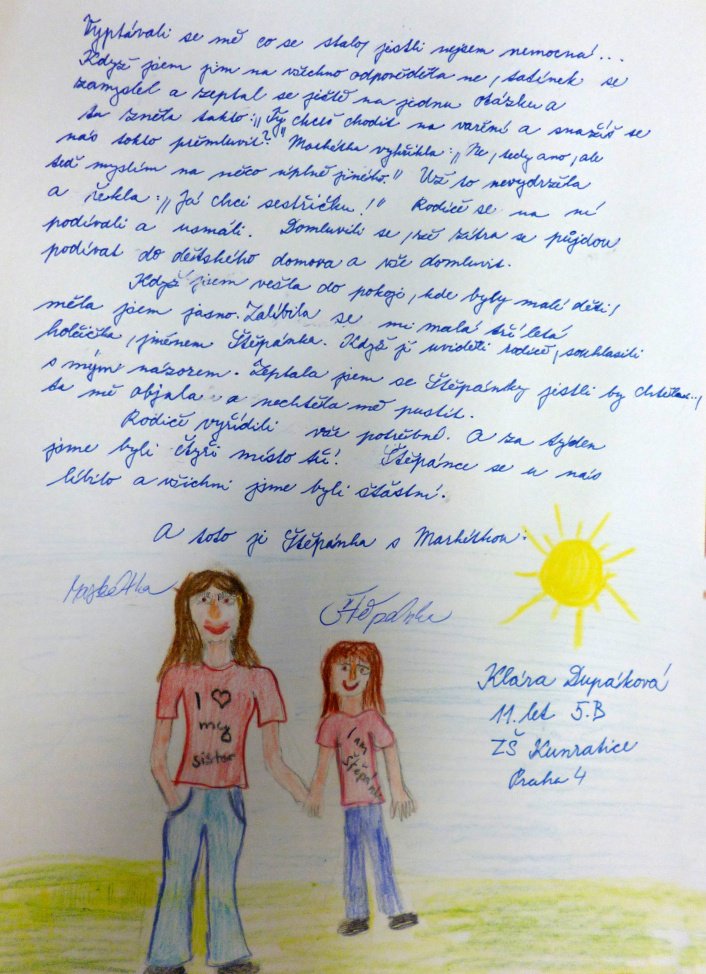 Vyptávali se mě co se stalo, jistli nejsem nemocná...
Když jsem jim na všechno odpověděla ne, tatínek se
zamyslel a zeptal se ještě na jednu otázku a
ta zněla takto: „Ty chceš chodit na vaření a snažíš se
nás takto přemluvit?" Markétka vyhrkla: „Ne, tedy ano, ale
teď myslím na něco úplně jiného." Už to nevydržela
a řekla: „Já chci sestřičku!" Rodiče se na ní
podívali a usmáli. Domluvili se, že zítra se půjdou
podívat do dětského domova a vše domluvit.
Když jsem vešla do pokoje, kde byly malé děti,
měla jsem jasno. Zalíbila se mi malá tří letá
holčička, jménem Štěpánka. Když jí uviděli rodiče, souhlasili
s mým názorem. Zeptala jsem se Štěpánky jistli by chtěla...,
ta mě objala a nechtěla mě pustit.
Rodiče vyřídili vše potřebné. A za týden
jsme byli čtyři místo tří! Štěpánce se u nás
líbilo a všichni jsme byli šťastní.
A toto je Štěpánka s Markétkou:
Markétka
Štěpánka
I ♥
my
sister
I am
Štěpánka
Klára Dupáková
11. let 5.B
ZŠ Kunratice
Praha 4